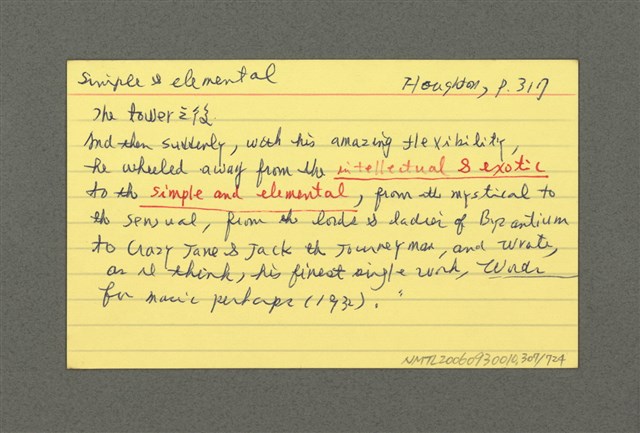 Simple & elemental
Houghton, p. 317
The tower之後
And then suddenly, with his amazing flexibility,
he wheeled away from the intellectual & exotic
to th simple and elemental, from th mystical to
th sensual, from th lords & ladies of Byzantium
to Crazy Jane & Jack th Journeyman, and wrote,
as I think, his finest single work, Words
for music perhaps (1932)."
NMTL20060930010,309/724